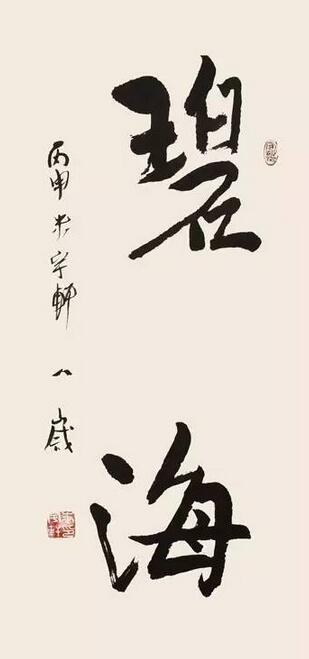 碧海
丙申 朱宇軒 八歲